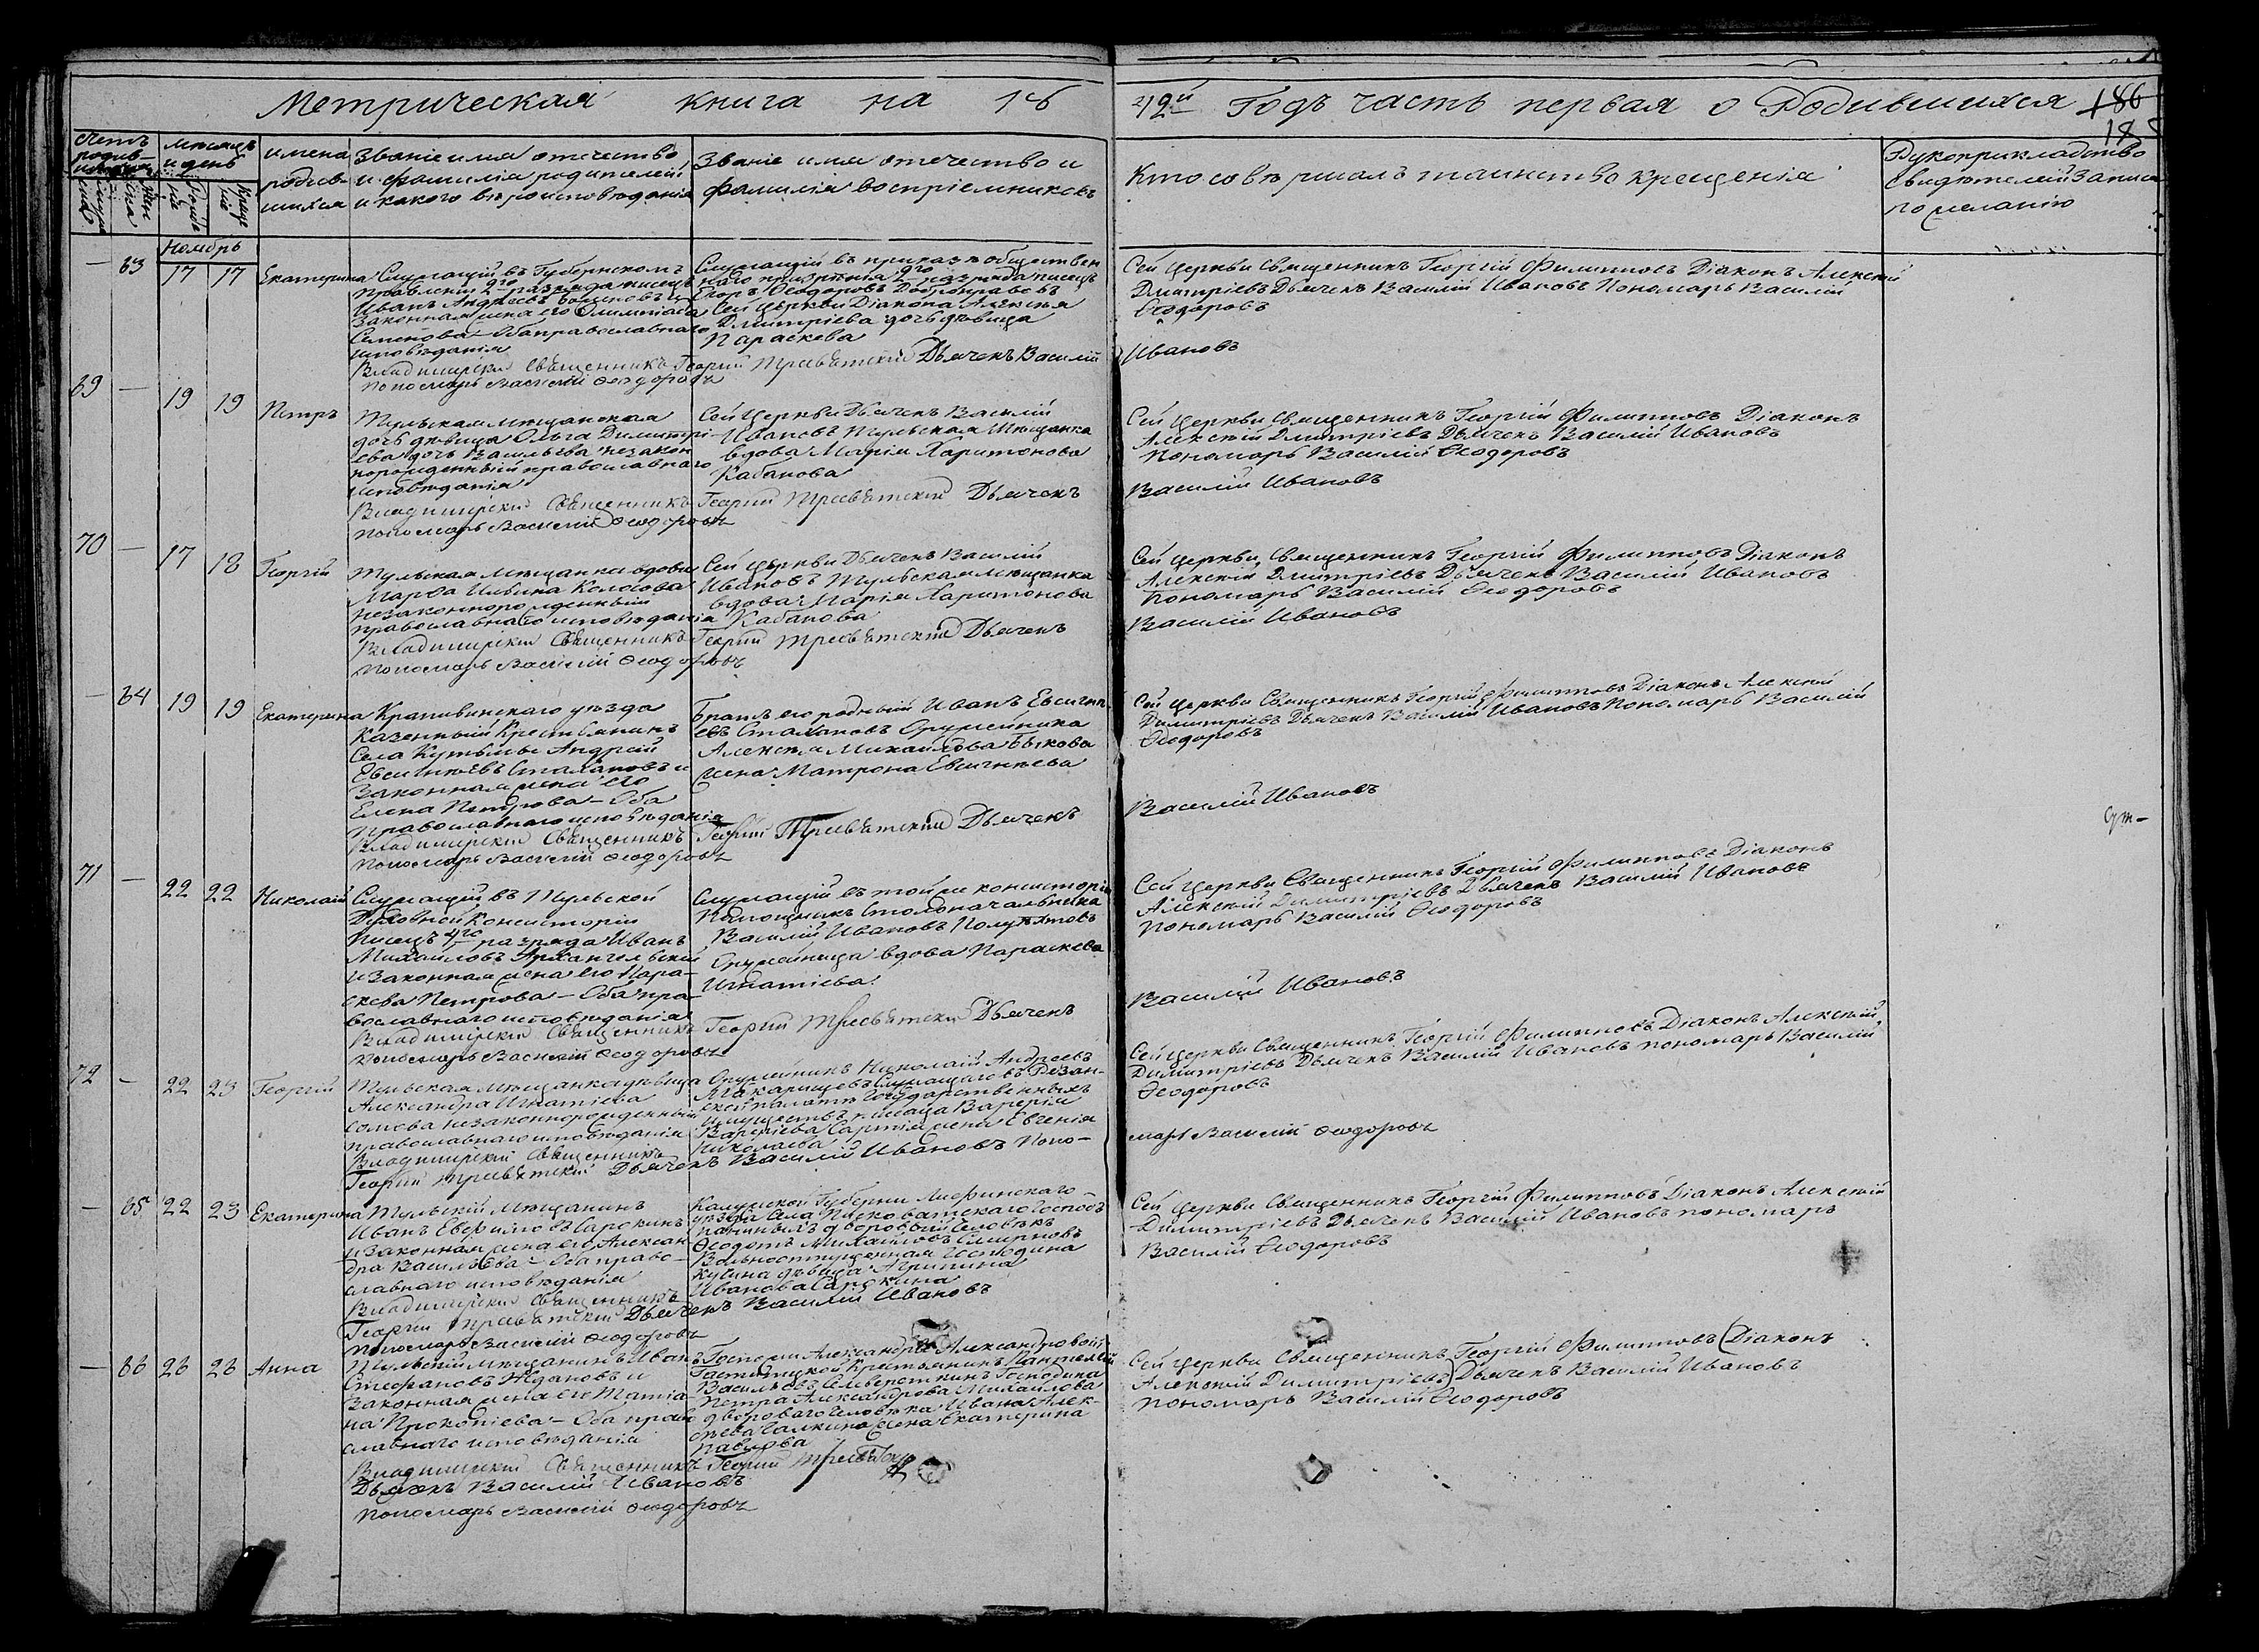 Метрическая книга на 18
42й Годъ часть первая о Родившихся
186
Счетъ родив-
Мѣсяцъ и день
имена родив-
шихся
Званіе имя отчество
и фамилія родителей
и какого вѣроисповѣданія
Званіе имя отечество и
фамилія воспріемниковъ
Кто совершалъ таинство крещенія
Рукоприкладство
свидѣтелей записи
по желанію
Ноябрь
— 63 17 17 Екатерина
Служащій въ Губернскомъ
Правленіи разряда писецъ
Иванъ Андреевъ
Законная жена его Олимпіада
Семенова – Оба православнаго
исповѣданія
Служащій въ приказѣ обществен
наго призрѣнія разряда писецъ
Егоръ Ѳеодоровъ Добронравовъ
Сей Церкви Діакона Алексѣя
Дмитріева дочь дѣвица
Параскева
Сей Церкви Священникъ Георгій Филипповъ Діаконъ Алексѣй
Дмитріевъ Дьячекъ Василій Ивановъ Пономарь Василій
Ѳеодоровъ
Владимірскій Священникъ Георгій Тресвятскій Дьячекъ Василій
Ивановъ
Пономарь Василій Ѳеодоровъ
69 — 19 19 Петръ
Тульская мѣщанская
дочь дѣвица Ольга Димитрі-
ева дочь Васильева незакон
норожденный православнаго
исповѣданія
Сей Церкви Дьячекъ Василій
Ивановъ Тульская Мѣщанка
вдова Марія Харитонова
Кабанова
Сей Церкви Священникъ Георгій Филипповъ Діаконъ
Алексѣй Дмитріевъ Дьячекъ Василій Ивановъ
Пономарь Василій Ѳеодоровъ
Владимірскій Священникъ Георгій Тресвятскій Дьячекъ
Василій Ивановъ
Пономарь Василій Ѳеодоровъ
70 — 17 18 Георгій
Тульская мѣщанка вдова
Марѳа Ильина Колосова
незаконнорожденный
православнаго исповѣданія
Сей Церкви Дьячекъ Василій
Ивановъ Тульская мѣщанка
вдова Марія Харитонова
Кабанова
Сей Церкви Священникъ Георгій Филипповъ Діаконъ
Алексѣй Дмитріевъ Дьячекъ Василій Ивановъ
Пономарь Василій Ѳеодоровъ
Владимірскій Священникъ Георгій Тресвятскій Дьячекъ
Василій Ивановъ
Пономарь Василій Ѳеодоровъ
— 64 19 19 Екатерина
Крапивинскаго уѣзда
Казенный Крестьянинъ
Села Кутьмы Андрей
Евсигнѣевъ Стахановъ и
Законная жена его
Елена Петрова – Оба
Православнаго исповѣданія
Братъ его родный Иванъ Евсигнѣ
евъ Стахановъ Оружейника
Алексѣя Михайлова Быкова
жена Матрона Евсигнѣева
Сей Церкви Священникъ Георгій Филипповъ Діаконъ Алексѣй
Димитріевъ Дьячекъ Василій Ивановъ Пономарь Василій
Ѳеодоровъ
Владимірскій Священникъ Георгій Тресвятскій Дьячекъ
Василій Ивановъ
Пономарь Василій Ѳеодоровъ
71 — 22 22 Николай
Служащій въ Тульской
Духовной Консисторіи
Писецъ 4го разряда Иванъ
Михайловъ Архангельскій
и Законная жена его Пара-
скева Петрова – Оба пра-
вославнаго исповѣданія
Служащій въ той же консисторіи
Помощникъ Столоначальника
Василій Ивановъ Полунѣтовъ
Оружейница вдова Параскева
Игнатіева
Сей Церкви Священникъ Георгій Филипповъ Діаконъ
Алексѣй Димитріевъ Дьячекъ Василій Ивановъ
Пономарь Василій Ѳеодоровъ
Владимірскій Священникъ Георгій Тресвятскій Дьячекъ
Василій Ивановъ
Пономарь Василій Ѳеодоровъ
72 – 22 23 Георгій
Тульская мѣщанка дѣвица
Александра Игнатіева
Сомова незаконнорожденный
православнаго исповѣданія
Оружейникъ Николай Андреевъ
Макарищевъ Служащаго въ Рязан-
ской палатѣ Государственныхъ
имуществъ Валерія
Валеріева жена Евгенія
Николаева
Сей Церкви Священникъ Георгій Филипповъ Діаконъ Алексѣй
Димитріевъ Дьячекъ Василій Ивановъ пономарь Василій
Ѳеодоровъ
Владимірскій Священникъ
Георгій Тресвятскій Дьячекъ Василій Ивановъ Поно-
марь Василій Ѳеодоровъ
— 65 22 23 Екатерина
Тульскій Мѣщанинъ
Иванъ Евфимовъ Сарокинъ
и Законная жена его Алексан-
дра Васильева – Оба право-
славнаго исповѣданія
Калужской Губерніи Лихвинскаго
уѣзда Села Господъ
дворовый человѣкъ
Ѳеодотъ Михайловъ Смирновъ
Вольноотпущенная Господина
Кучина дѣвица Агрипина
Иванова Сарокина
Сей Церкви Священникъ Георгій Филипповъ Діаконъ Алексѣй
Димитріевъ Дьячекъ Василій Ивановъ пономарь
Василій Ѳеодоровъ
Владимірскій Священникъ
Георгій Тресвятскій Дьячекъ Василій Ивановъ
Пономарь Василій Ѳеодоровъ
— 66 26 26 Анна
Тульскій мѣщанинъ Иванъ
Стефановъ Ждановъ и
Законная жена его Татіа-
на Прокопіева – Оба право
славнаго исповѣданія
Госпожи Александры Александровой
Крестьянинъ Пантелей
Васильевъ Селиверсткинъ Господина
Петра Александрова Михайлова
двороваго человѣка Ивана Алек-
сѣева Галкина жена Екатерина
Павлова
Сей Церкви Священникъ Георгій Филипповъ (Діаконъ
Алексѣй Димитріевъ) Дьячекъ Василій Ивановъ
пономарь Василій Ѳеодоровъ
Владимірскій Священникъ Георгій
Дьячекъ Василій Ивановъ
Пономарь Василій Ѳеодоровъ